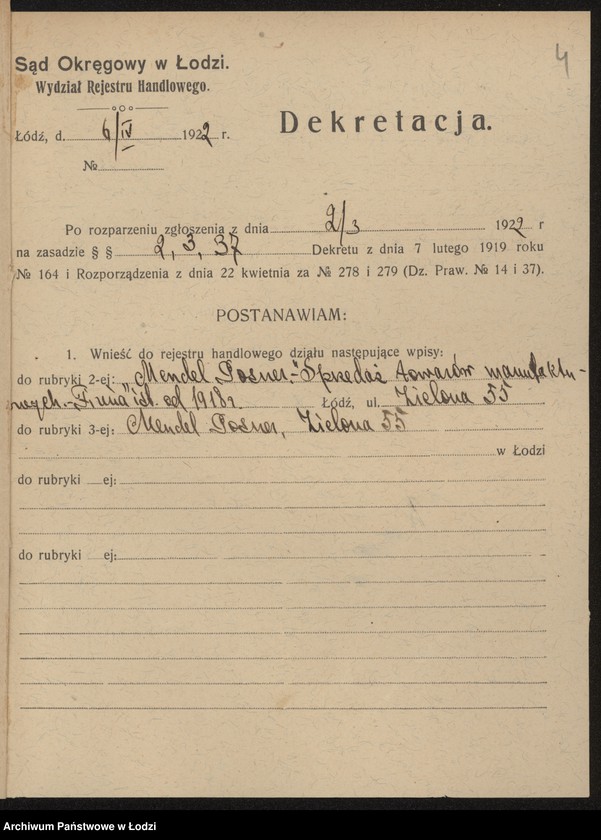 4
Sąd Okręgowy w Łodzi.
Wydział Rejestru Handlowego.
Łódź, d. 6/IV 1922 r.
Dekretacja.
№
Po rozparzeniu zgłoszenia z dnia 2/3 1922 r
na zasadzie § § 2, 3, 37 Dekretu z dnia 7 lutego 1919 roku
№ 164 i Rozporządzenia z dnia 22 kwietnia za № 278 i 279 (Dz. Praw. № 14 i 37).
POSTANAWIAM:
1. Wnieść do rejestru handlowego działu następujące wpisy:
do rubryki 2-ej: „Mendel Posner.-" Sprzedaż towarów manufaktu-
rowych.- Firma ist. od 1918 r. Łódź, ul. Zielona 55
do rubryki 3-ej: Mendel Posner, Zielona 55
w Łodzi
do rubryki ej:
do rubryki ej:
Archiwum Państwowe w Łodzi